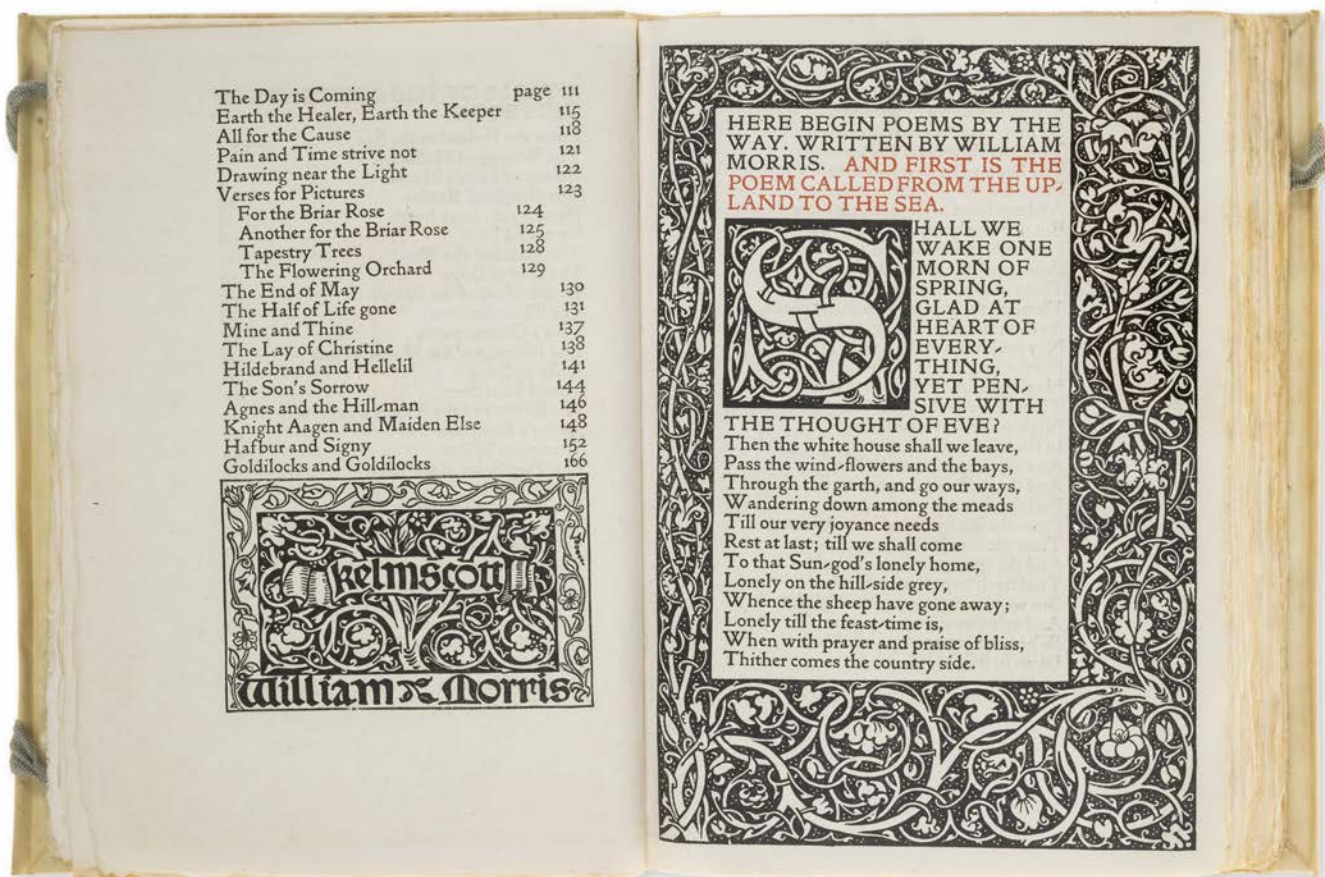 The Day is Coming page 111
Earth the Healer, Earth the Keeper 115
All for the Cause 118
Pain and Time strive not 121
Drawing near the Light 122
Verses for Pictures 123
For the Briar Rose 124
Another for the Briar Rose 125
Tapestry Trees 128
The Flowering Orchard 129
The End of May 130
The Half of Life gone 131
Mine and Thine 137
The Lay of Christine 138
Hildebrand and Hellelil 141
The Son's Sorrow 144
Agnes and the Hill-man 146
Knight Aagen and Maiden Else 148
Hafbur and Signy 152
Goldilocks and Goldilocks 166
kelmscott
William Morris
HERE BEGIN POEMS BY THE
WAY. WRITTEN BY WILLIAM
MORRIS. AND FIRST IS THE
POEM CALLED FROM THE UP-
LAND TO THE SEA.
SHALL WE
WAKE ONE
MORN OF
SPRING,
GLAD AT
HEART OF
EVERY-
THING,
YET PEN-
SIVE WITH
THE THOUGHT OF EVE?
Then the white house shall we leave,
Pass the wind-flowers and the bays,
Through the garth, and go our ways,
Wandering down among the meads
Till our very joyance needs
Rest at last; till we shall come
To that Sun-god's lonely home,
Lonely on the hill-side grey,
Whence the sheep have gone away;
Lonely till the feast-time is,
When with prayer and praise of bliss,
Thither comes the country side.